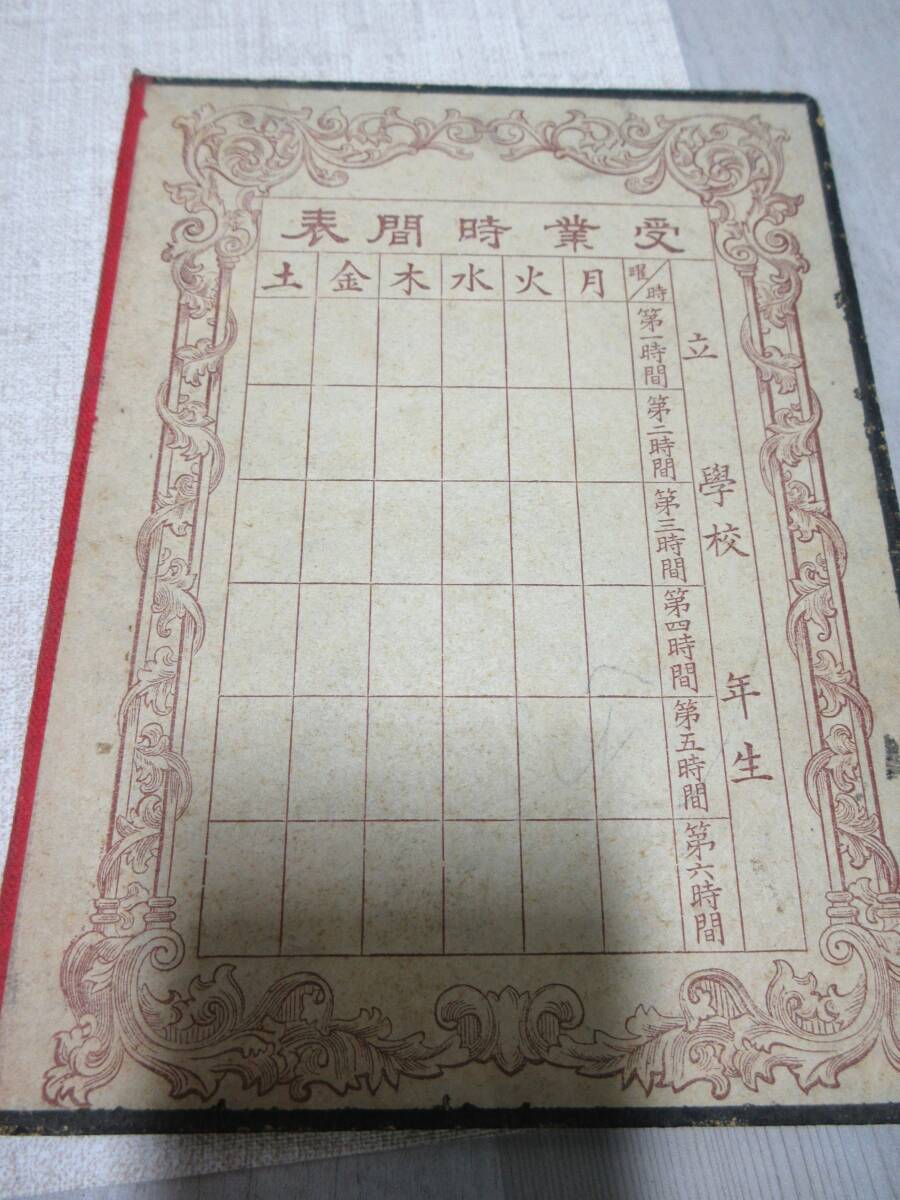 受業時間表
立　學校　年生
曜／時　月　火　水　木　金　土
第一時間
第二時間
第三時間
第四時間
第五時間
第六時間